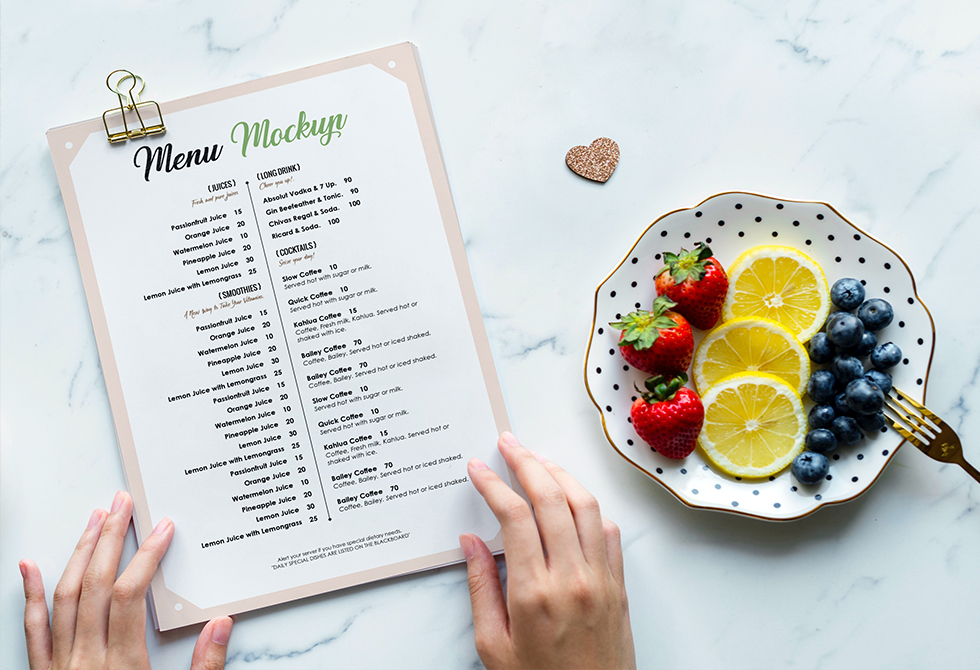 Menu Mockup
(JUICES)
Fresh and pure juices
Passionfruit Juice 15
Orange Juice 20
Watermelon Juice 10
Pineapple Juice 20
Lemon Juice 30
Lemon Juice with Lemongrass 25
(SMOOTHIES)
A New way to Take Your Vitamins.
Passionfruit Juice 15
Orange Juice 20
Watermelon Juice 10
Pineapple Juice 20
Lemon Juice 30
Lemon Juice with Lemongrass 25
Passionfruit Juice 15
Orange Juice 20
Watermelon Juice 10
Pineapple Juice 20
Lemon Juice 30
Lemon Juice with Lemongrass 25
Passionfruit Juice 15
Orange Juice 20
Watermelon Juice 10
Pineapple Juice 20
Lemon Juice 30
Lemon Juice with Lemongrass 25
(LONG DRINK)
Cheer you up!
Absolut Vodka & 7 Up. 90
Gin Beefeather & Tonic. 90
Chivas Regal & Soda. 100
Ricard & Soda. 100
(COCKTAILS)
Seize your day!
Slow Coffee 10
Served hot with sugar or milk.
Quick Coffee 10
Served hot with sugar or milk.
Kahlua Coffee 15
Coffee, Fresh milk, Kahlua. Served hot or
shaked with ice.
Bailey Coffee 70
Coffee, Bailey. Served hot or iced shaked.
Bailey Coffee 70
Coffee, Bailey. Served hot or iced shaked.
Slow Coffee 10
Served hot with sugar or milk.
Quick Coffee 10
Served hot with sugar or milk.
Kahlua Coffee 15
Coffee, Fresh milk, Kahlua. Served hot or
shaked with ice.
Bailey Coffee 70
Coffee, Bailey. Served hot or iced shaked.
Bailey Coffee 70
Coffee, Bailey. Served hot or iced shaked.
Alert your server if you have special dietary needs.
"DAILY SPECIAL DISHES ARE LISTED ON THE BLACKBOARD"